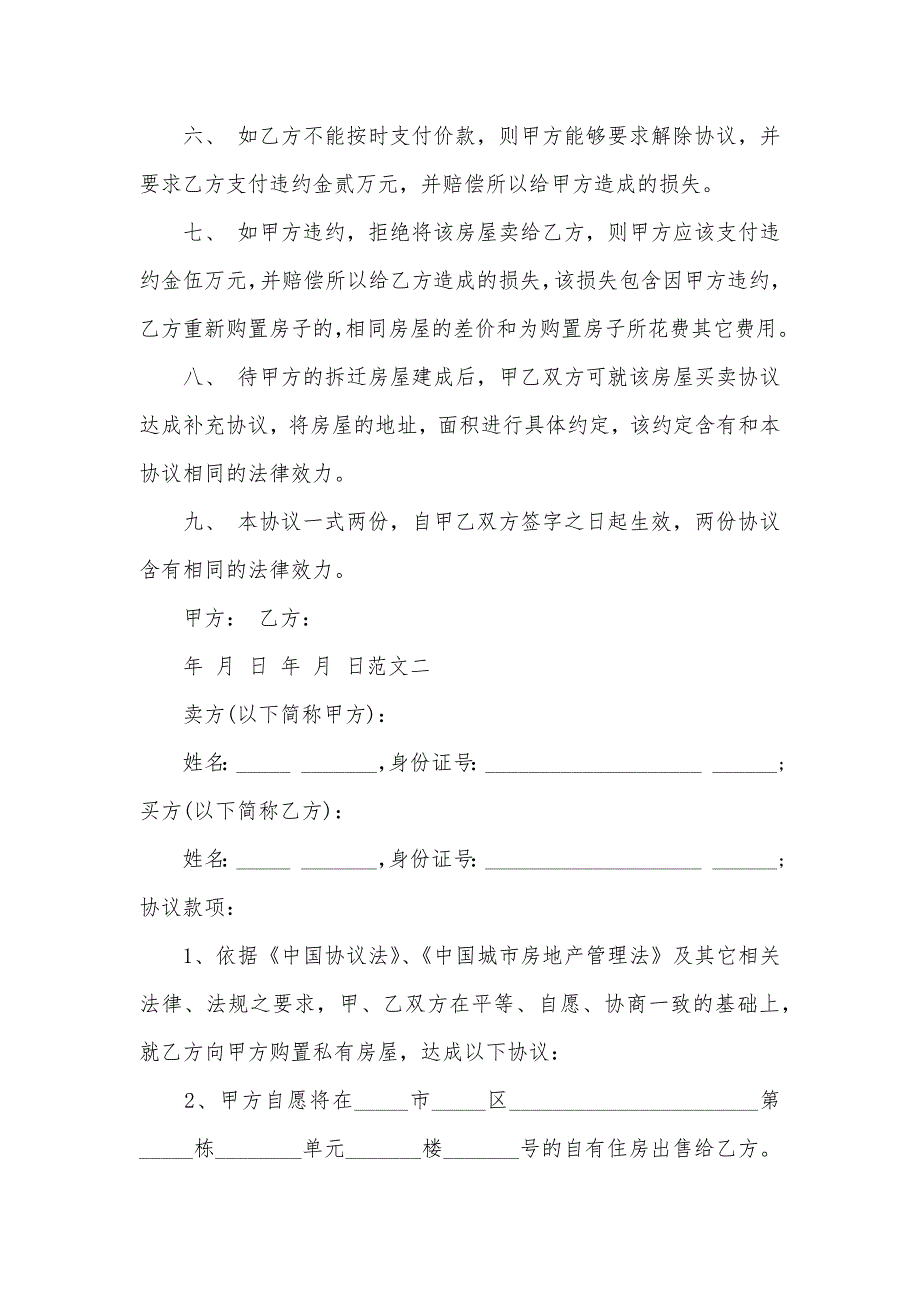 六、 如乙方不能按时支付价款，则甲方能够要求解除协议，并
要求乙方支付违约金贰万元，并赔偿所以给甲方造成的损失。
七、 如甲方违约，拒绝将该房屋卖给乙方，则甲方应该支付违
约金伍万元，并赔偿所以给乙方造成的损失，该损失包含因甲方违约，
乙方重新购置房子的，相同房屋的差价和为购置房子所花费其它费用。
八、 待甲方的拆迁房屋建成后，甲乙双方可就该房屋买卖协议
达成补充协议，将房屋的地址，面积进行具体约定，该约定含有和本
协议相同的法律效力。
九、 本协议一式两份，自甲乙双方签字之日起生效，两份协议
含有相同的法律效力。
甲方： 乙方：
年 月 日 年 月 日范文二
卖方(以下简称甲方)：
姓名：_____ _______，身份证号：____________________ ______；
买方(以下简称乙方)：
姓名：_____ _______，身份证号：____________________ ______；
协议款项：
1、依据《中国协议法》、《中国城市房地产管理法》及其它相关
法律、法规之要求，甲、乙双方在平等、自愿、协商一致的基础上，
就乙方向甲方购置私有房屋，达成以下协议：
2、甲方自愿将在_____市_____区_______________________第
_____栋________单元_______楼_______号的自有住房出售给乙方。